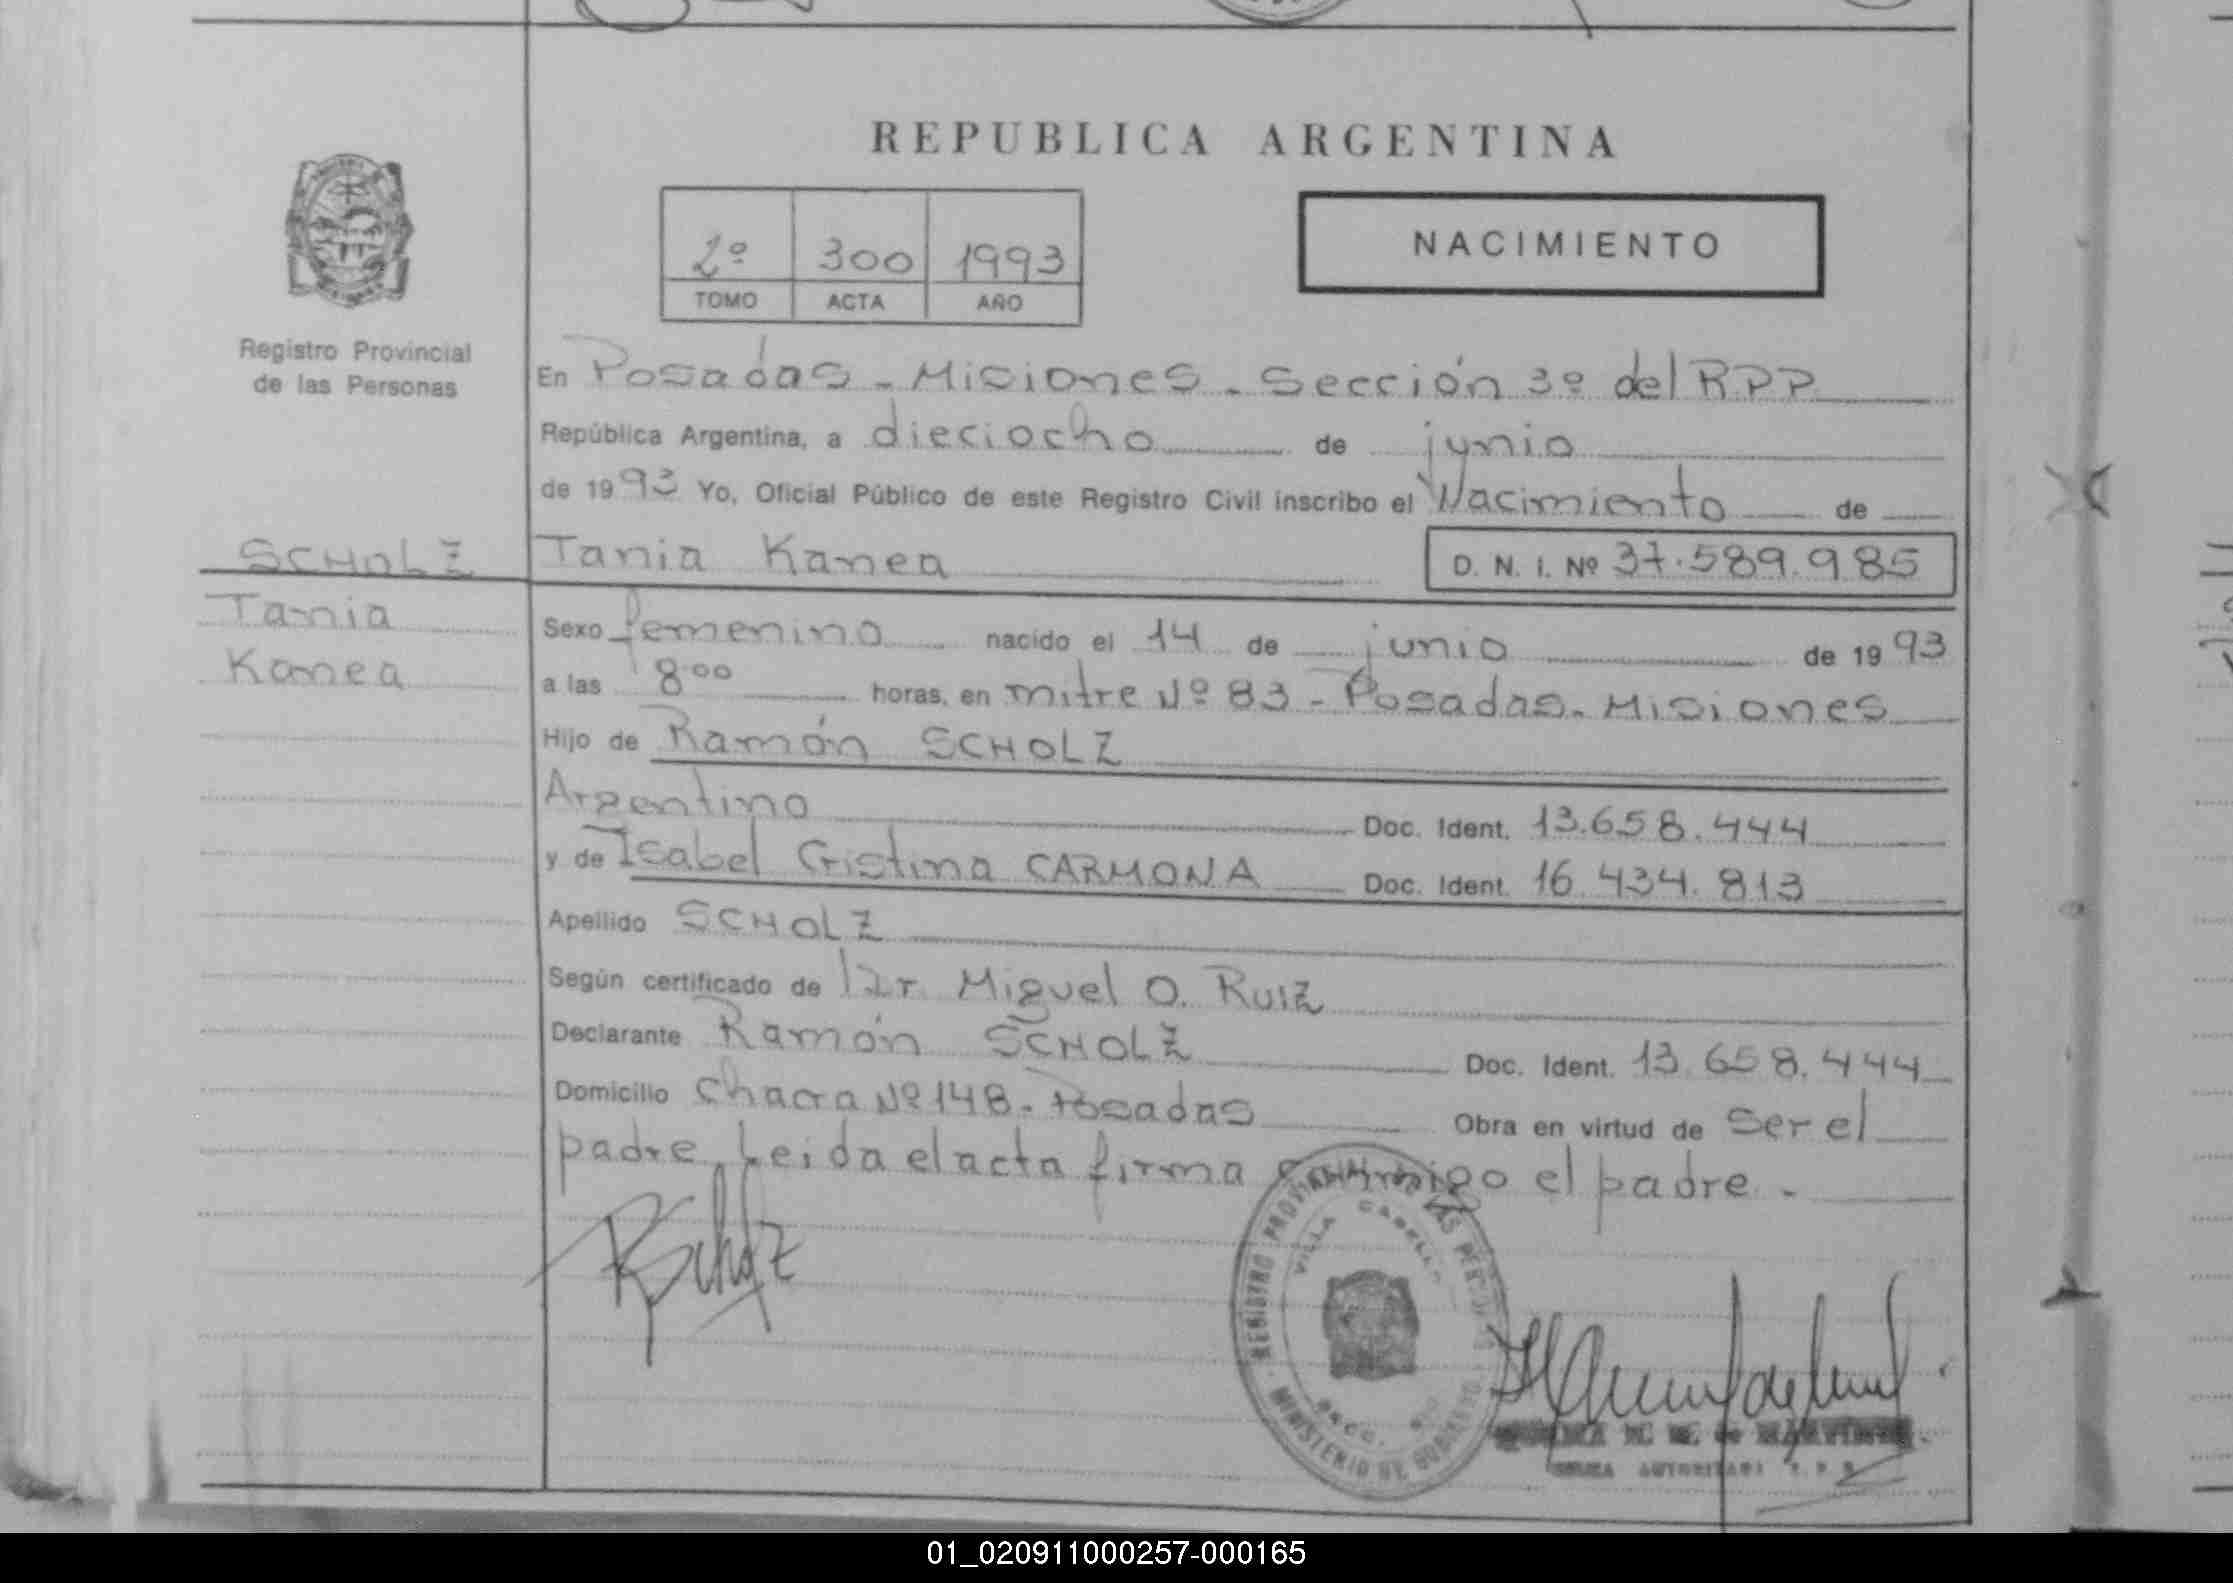 REPUBLICA ARGENTINA
2º 300 1993
TOMO ACTA AÑO
NACIMIENTO
Registro Provincial
de las Personas
SCHOLZ
Tania
Kanea
En Posadas - Misiones - Sección 3º del R.P.P.
República Argentina, a dieciocho de junio
de 1993 Yo, Oficial Público de este Registro Civil inscribo el Nacimiento de
Tania Kanea
D. N. I. Nº 37.589.985
Sexo femenino nacido el 14 de junio de 1993
a las 8 00 horas, en mitre Nº 83 - Posadas - Misiones
Hijo de Ramón SCHOLZ
Argentino Doc. Ident. 13.658.444
y de Isabel Cristina CARMONA Doc. Ident. 16.434.813
Apellido SCHOLZ
Según certificado de Dr. Miguel O. Ruiz
Declarante Ramón SCHOLZ Doc. Ident. 13.658.444
Domicilio Chacra Nº 148 - Posadas Obra en virtud de ser el
padre. Leida el acta firma conmigo el padre. -
RScholz
REGISTRO PROVINCIAL DE LAS PERSONAS
VILLA CABELLO
SECC.
MINISTERIO DE GOBIERNO
de MARTINEZ
01_020911000257-000165